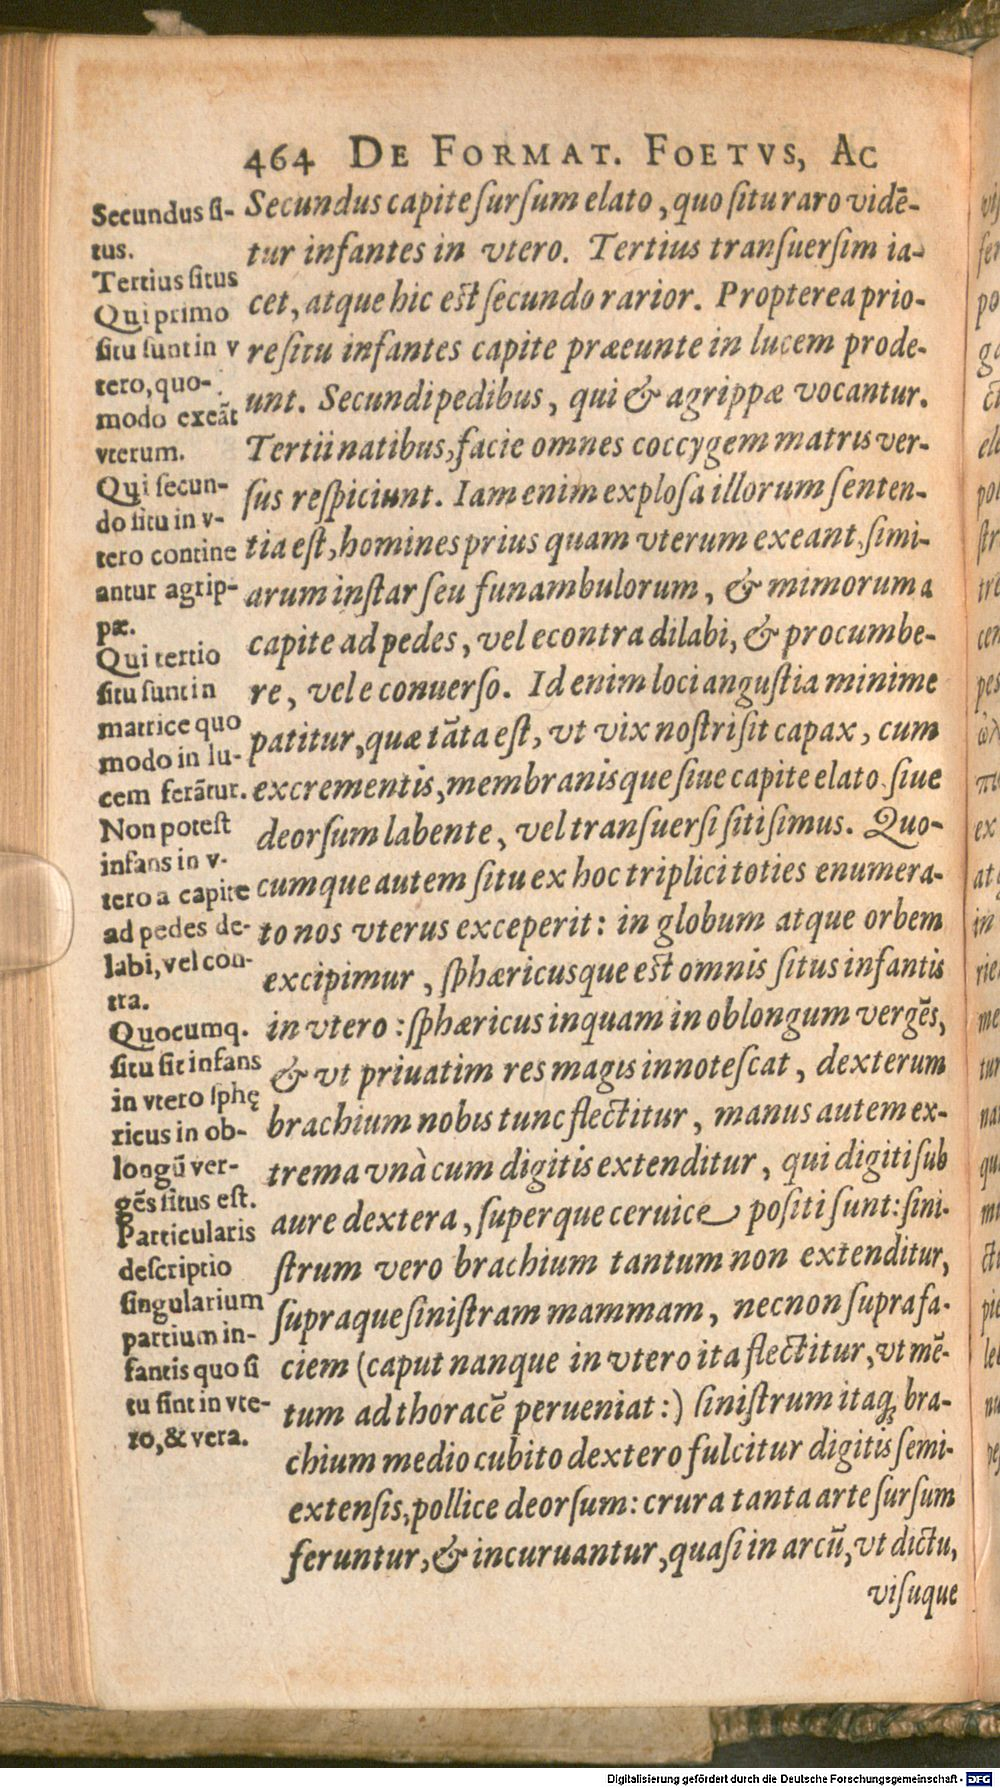 464 DE FORMAT. FOETVS, AC
Secundus ſi-
tus.
Tertius ſitus
Qui primo
ſitu ſunt in v
tero, quo-
modo exeāt
vterum.
Qui ſecun-
do ſitu in v-
tero contine
antur agrip-
pæ.
Qui tertio
ſitu ſunt in
matrice quo
modo in lu-
cem ferātur.
Non poteſt
infans in v-
tero a capite
ad pedes de-
labi, vel con-
tra.
Quocumq.
ſitu ſit infans
in vtero ſphę
ricus in ob-
longū ver-
gēs ſitus eſt.
Particularis
deſcriptio
ſingularium
partium in-
fantis quo ſi
tu ſint in vte-
ro, & vera.
Secundus capite ſurſum elato, quo ſitu raro vidē-
tur infantes in vtero. Tertius tranſuerſim ia-
cet, atque hic eſt ſecundo rarior. Propterea prio-
re ſitu infantes capite præeunte in lucem prode-
unt. Secundi pedibus, qui & agrippæ vocantur.
Tertii natibus, facie omnes coccygem matris ver-
ſus reſpiciunt. Iam enim exploſa illorum ſenten-
tia eſt, homines prius quam vterum exeant, ſimi-
arum inſtar ſeu funambulorum, & mimorum a
capite ad pedes, vel econtra dilabi, & procumbe-
re, vel e conuerſo. Id enim loci anguſtia minime
patitur, quæ tāta eſt, vt vix noſtri ſit capax, cum
excrementis, membranisque ſiue capite elato, ſiue
deorſum labente, vel tranſuerſi ſiti ſimus. Quo-
cumque autem ſitu ex hoc triplici toties enumera-
to nos vterus exceperit: in globum atque orbem
excipimur, ſphæricusque eſt omnis ſitus infantis
in vtero: ſphæricus inquam in oblongum vergēs,
& vt priuatim res magis innoteſcat, dexterum
brachium nobis tunc flectitur, manus autem ex-
trema vnà cum digitis extenditur, qui digiti ſub
aure dextera, ſuperque ceruice poſiti ſunt: ſini-
ſtrum vero brachium tantum non extenditur,
ſupraque ſiniſtram mammam, necnon ſupra fa-
ciem (caput nanque in vtero ita flectitur, vt mē-
tum ad thoracē perueniat:) ſiniſtrum itaq; bra-
chium medio cubito dextero fulcitur digitis ſemi-
extenſis, pollice deorſum: crura tanta arte ſurſum
feruntur, & incuruantur, quaſi in arcū, vt dictu,
viſuque
Digitalisierung gefördert durch die Deutsche Forschungsgemeinschaft - DFG